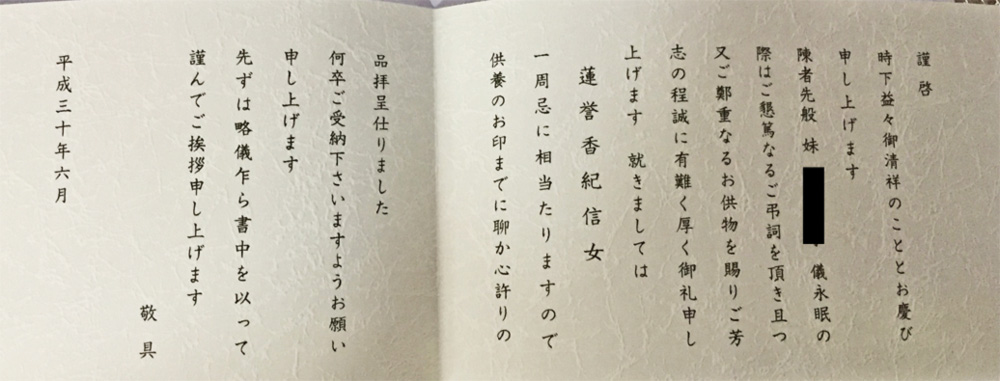 謹啓
時下益々御清祥のこととお慶び
申し上げます
陳者先般 妹 儀永眠の
際はご懇篤なるご弔詞を頂き且つ
又ご鄭重なるお供物を賜りご芳
志の程誠に有難く厚く御礼申し
上げます 就きましては
蓮誉香紀信女
一周忌に相当たりますので
供養のお印までに聊か心許りの
品拝呈仕りました
何卒ご受納下さいますようお願い
申し上げます
先ずは略儀乍ら書中を以って
謹んでご挨拶申し上げます
敬具
平成三十年六月